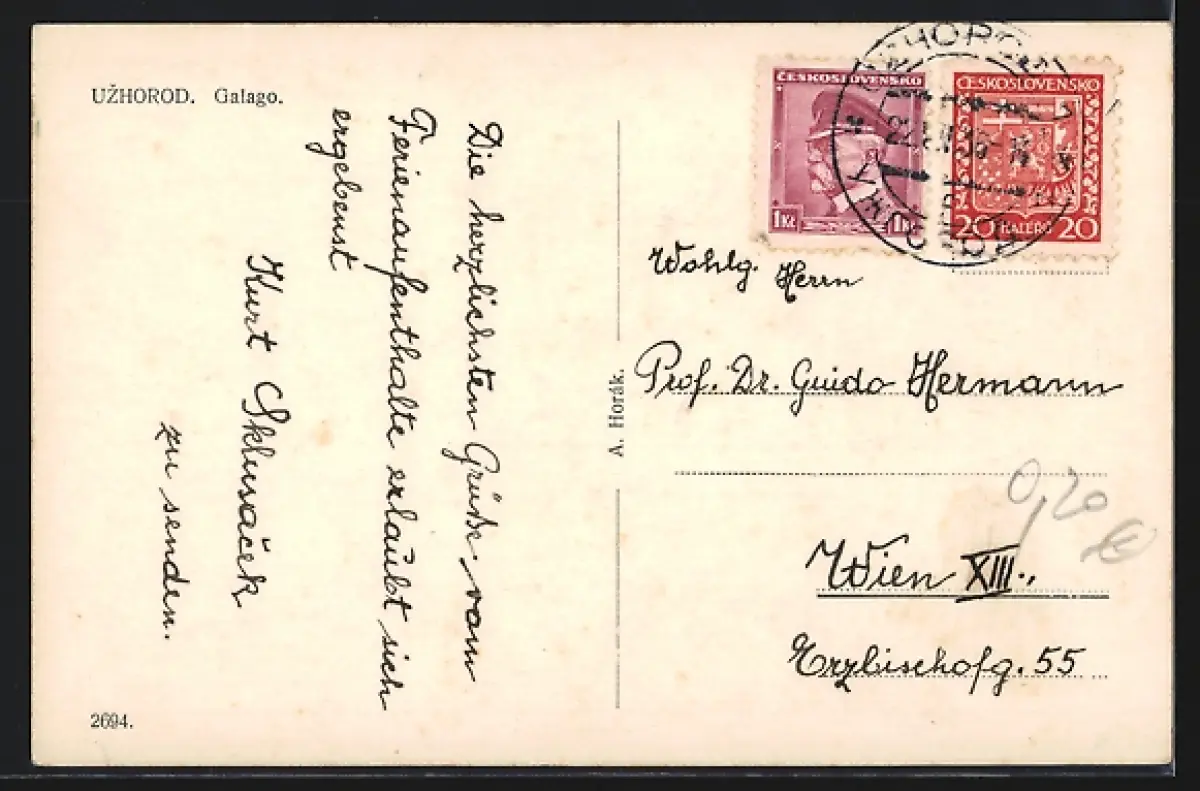 UŽHOROD. Galago.
Die herzlichsten Grüße vom
Ferienaufenthalte erlaubt sich
ergebenst
Kurt Sklusaček
zu senden.
2694.
A. Horák.
ČESKOSLOVENSKO
1 Kč 1 Kč
ČESKOSLOVENSKO
20 HALÉŘŮ 20
UŽHOROD
Wohlg. Herrn
Prof. Dr. Guido Hermann
0,20
€
Wien XIII.,
Erzbischofg. 55